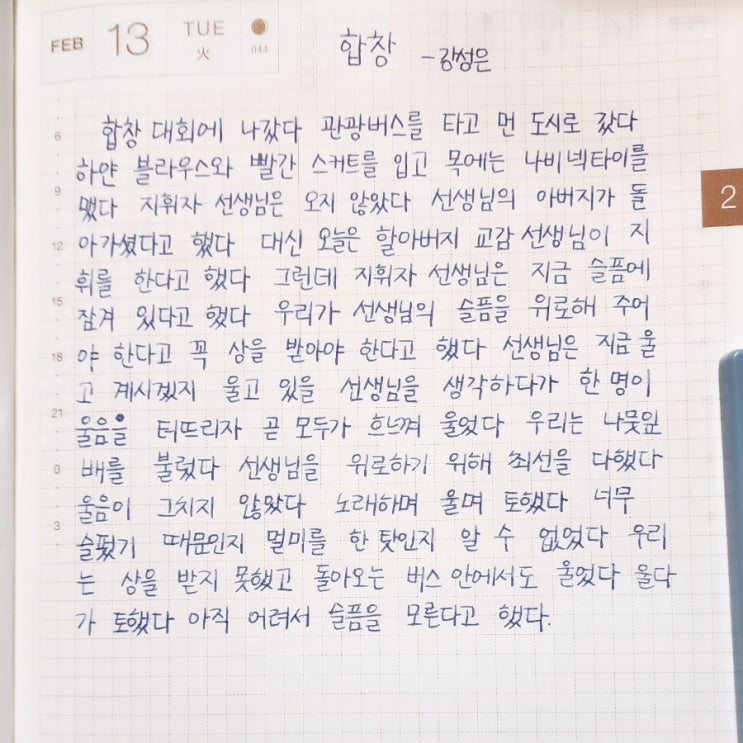 FEB 13 TUE 火 044
합창 -강성은
6 합창 대회에 나갔다 관광버스를 타고 먼 도시로 갔다
하얀 블라우스와 빨간 스커트를 입고 목에는 나비넥타이를
9 맸다 지휘자 선생님은 오지 않았다 선생님의 아버지가 돌
2
12 아가셨다고 했다 대신 오늘은 할아버지 교감 선생님이 지
휘를 한다고 했다 그런데 지휘자 선생님은 지금 슬픔에
15 잠겨 있다고 했다 우리가 선생님의 슬픔을 위로해 주어
18 야 한다고 꼭 상을 받아야 한다고 했다 선생님은 지금 울
고 계시겠지 울고 있을 선생님을 생각하다가 한 명이
21 울음을 터뜨리자 곧 모두가 흐느껴 울었다 우리는 나뭇잎
0 배를 불렀다 선생님을 위로하기 위해 최선을 다했다
울음이 그치지 않았다 노래하며 울며 토했다 너무
3 슬펐기 때문인지 멀미를 한 탓인지 알 수 없었다 우리
는 상을 받지 못했고 돌아오는 버스 안에서도 울었다 울다
가 토했다 아직 어려서 슬픔을 모른다고 했다.